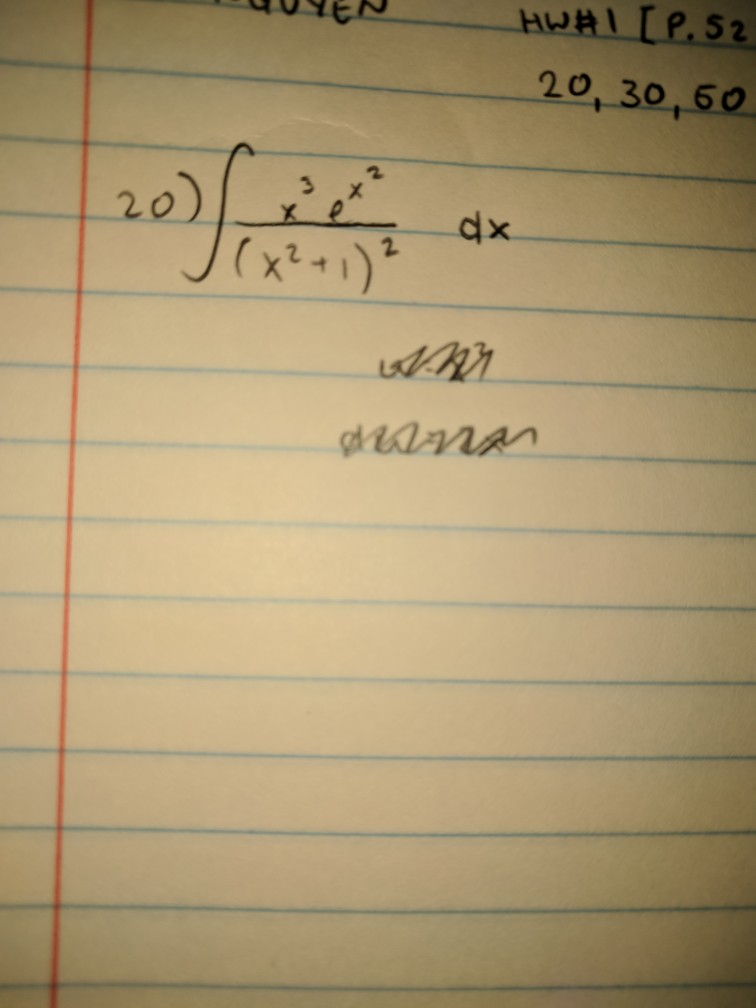 HW#1 [P.52
20, 30, 60
20) ∫ x³ e^x² / (x²+1)² dx